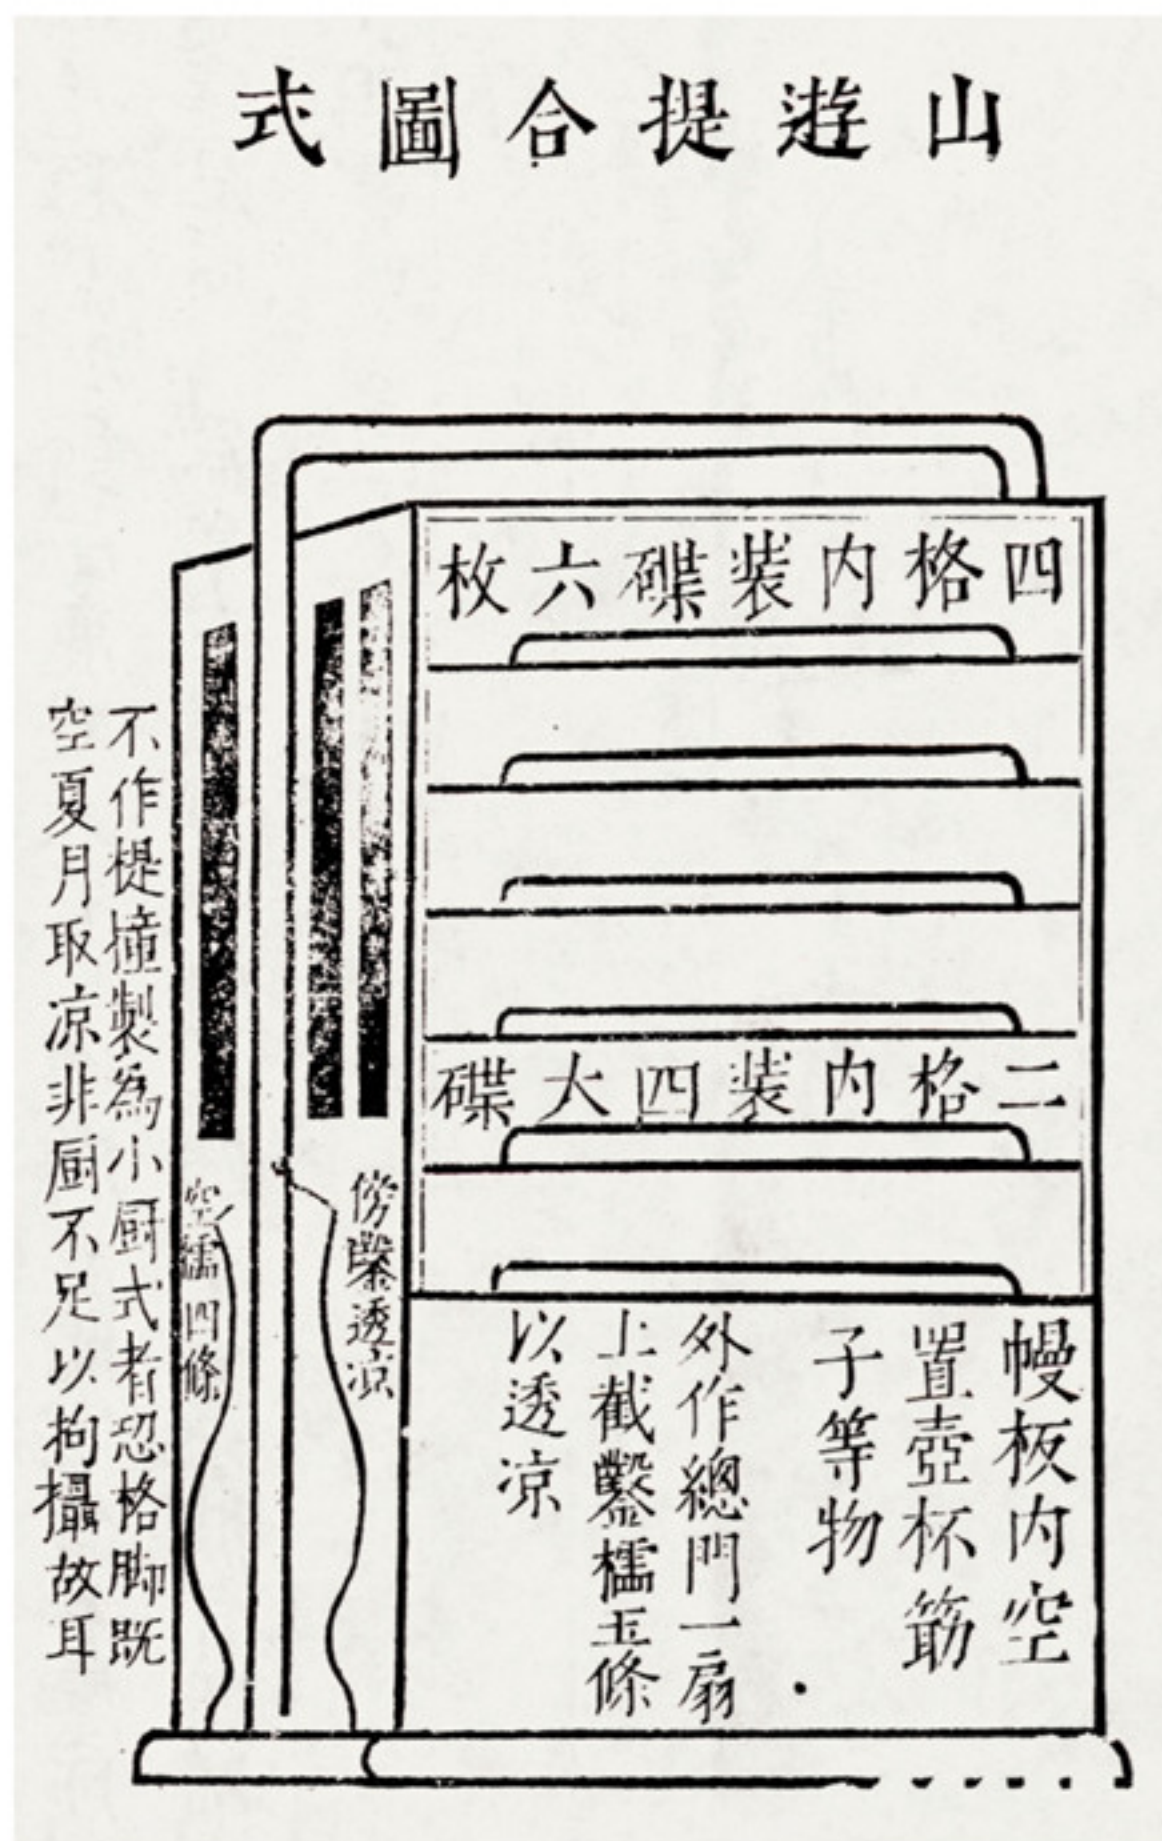 山遊提合圖式
四格内装碟六枚
二格内装四大碟
幔板内空
置壺杯筯
子等物
外作總門一扇
上截鑿櫺五條
以透凉
傍鑿透凉
空櫺四條
不作提撞製為小厨式者恐格脚既
空夏月取凉非厨不足以拘攝故耳